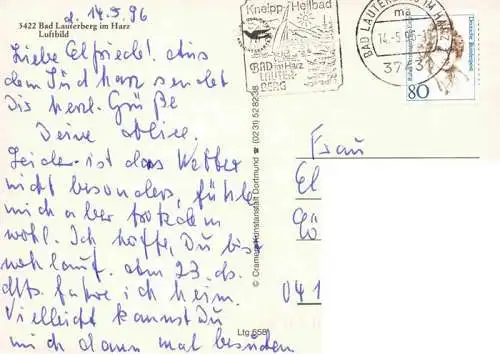 d. 14.5.96
3422 Bad Lauterberg im Harz
Luftbild
Liebe Elfriede! Aus
dem Südharz sendet
Dir herzl. Grüße
Deine
Leider ist das Wetter
nicht besonders, fühle
mich aber trotzdem
wohl. Ich hoffe, Du bist
wohlauf. Am 23. ds.
Mts. fahre ich heim.
Vielleicht kannst Du
mich dann mal besuchen
© Cramers Kunstanstalt Dortmund ☎ (0231) 528238
Ltg 658
Kneipp-Heilbad
BAD im Harz
LAUTER-
BERG
BAD LAUTERBERG IM HARZ
ma
14.-5.
3743
Deutsche Bundespost
80
Frau
El
Gö
041